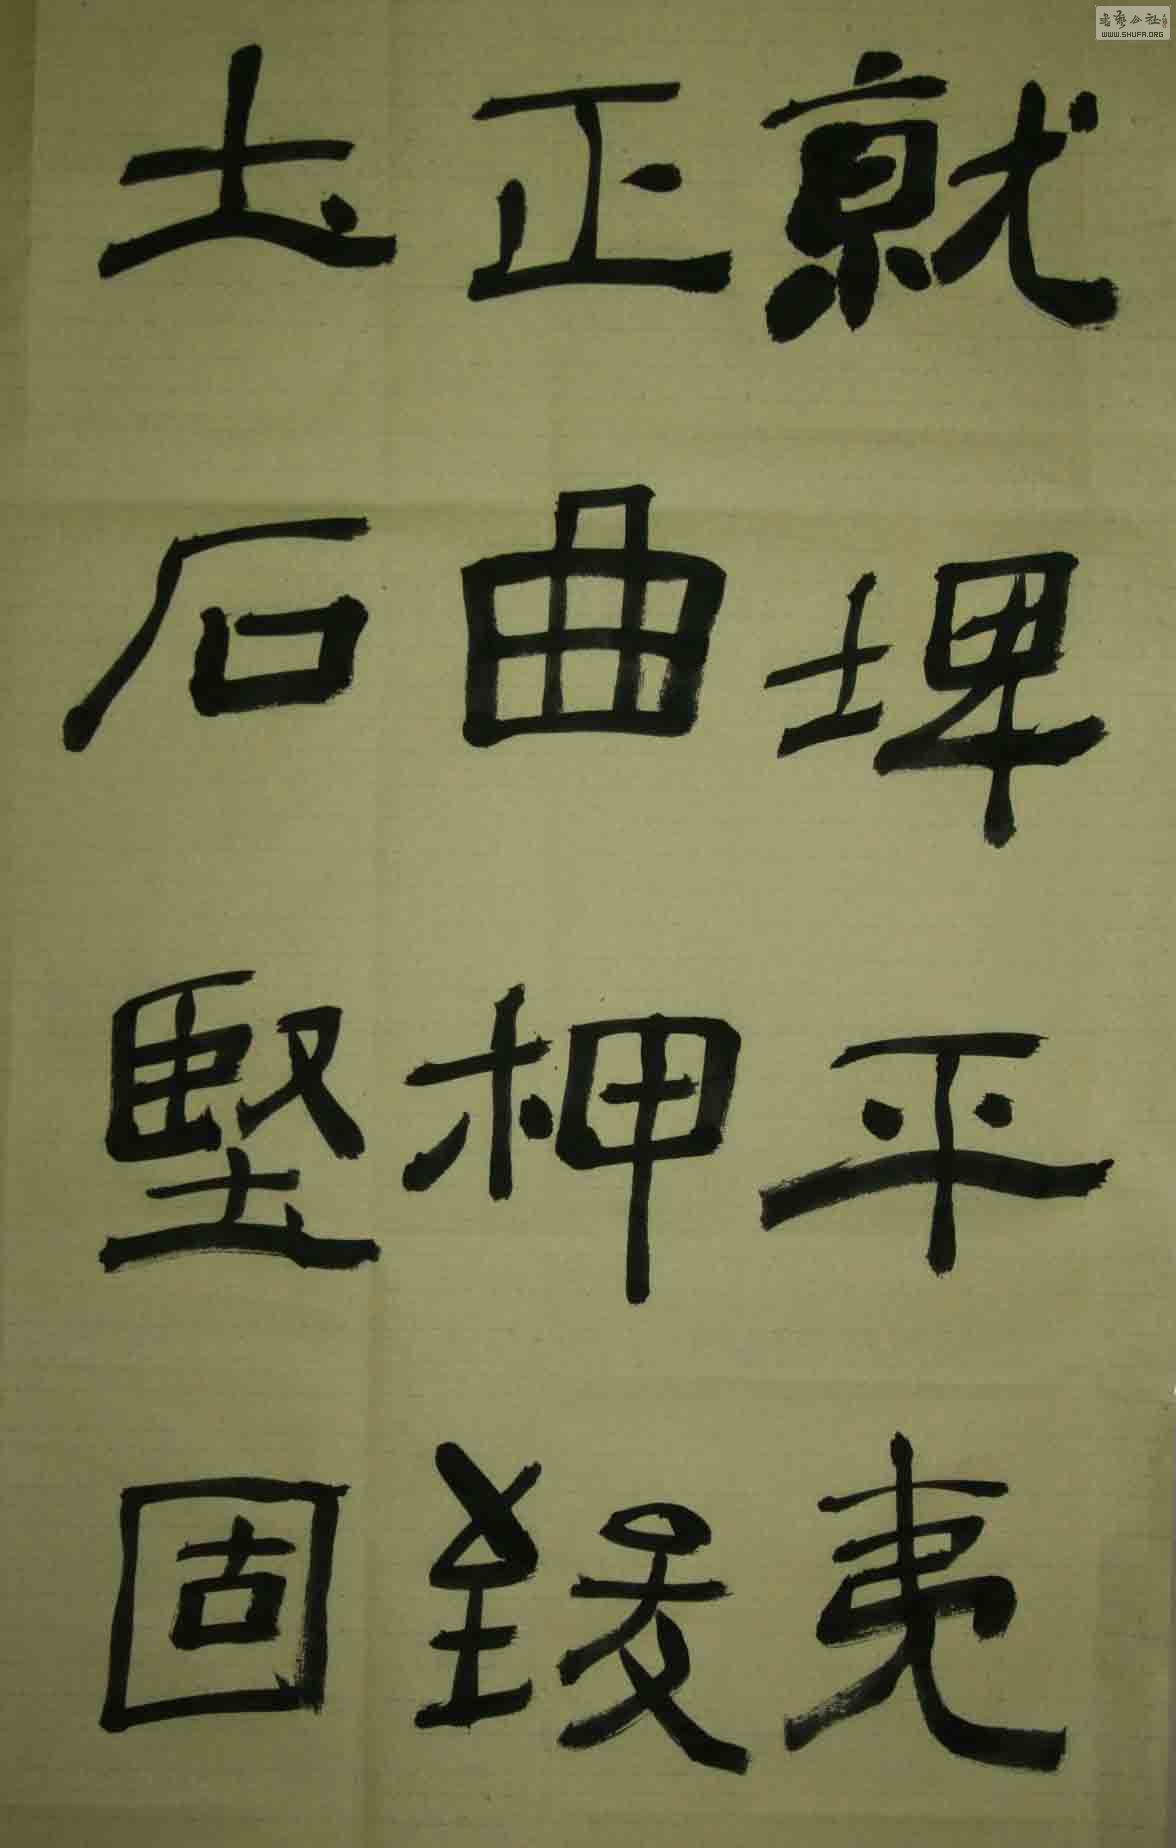 就埤平夷
正曲柙致
土石堅固
书艺公社
WWW.SHUFA.ORG